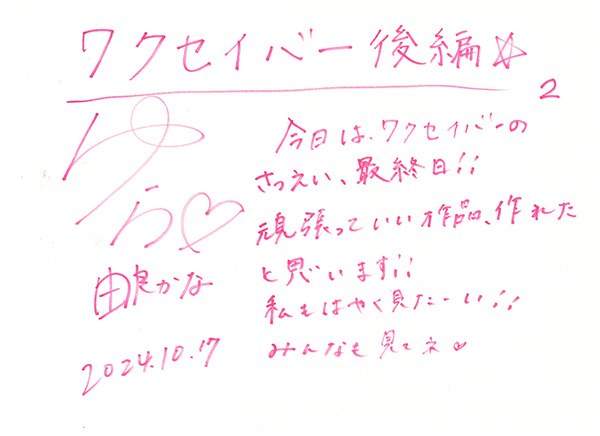 ワクセイバー後編☆
2
ゆら♡
今日は、ワクセイバーの
さつえい、最終日!!
頑張っていい作品、作れた
と思います!!
私もはやく見たーい!!
みんなも見てネ♡
由良かな
2024.10.17